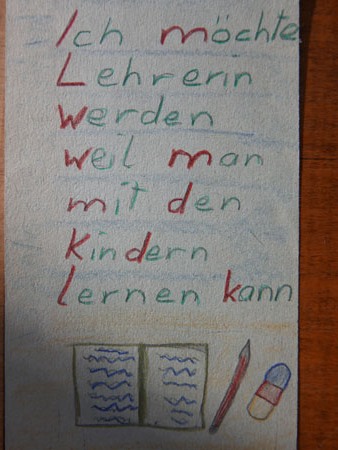 Ich möchte
Lehrerin
werden
weil man
mit den
Kindern
lernen kann